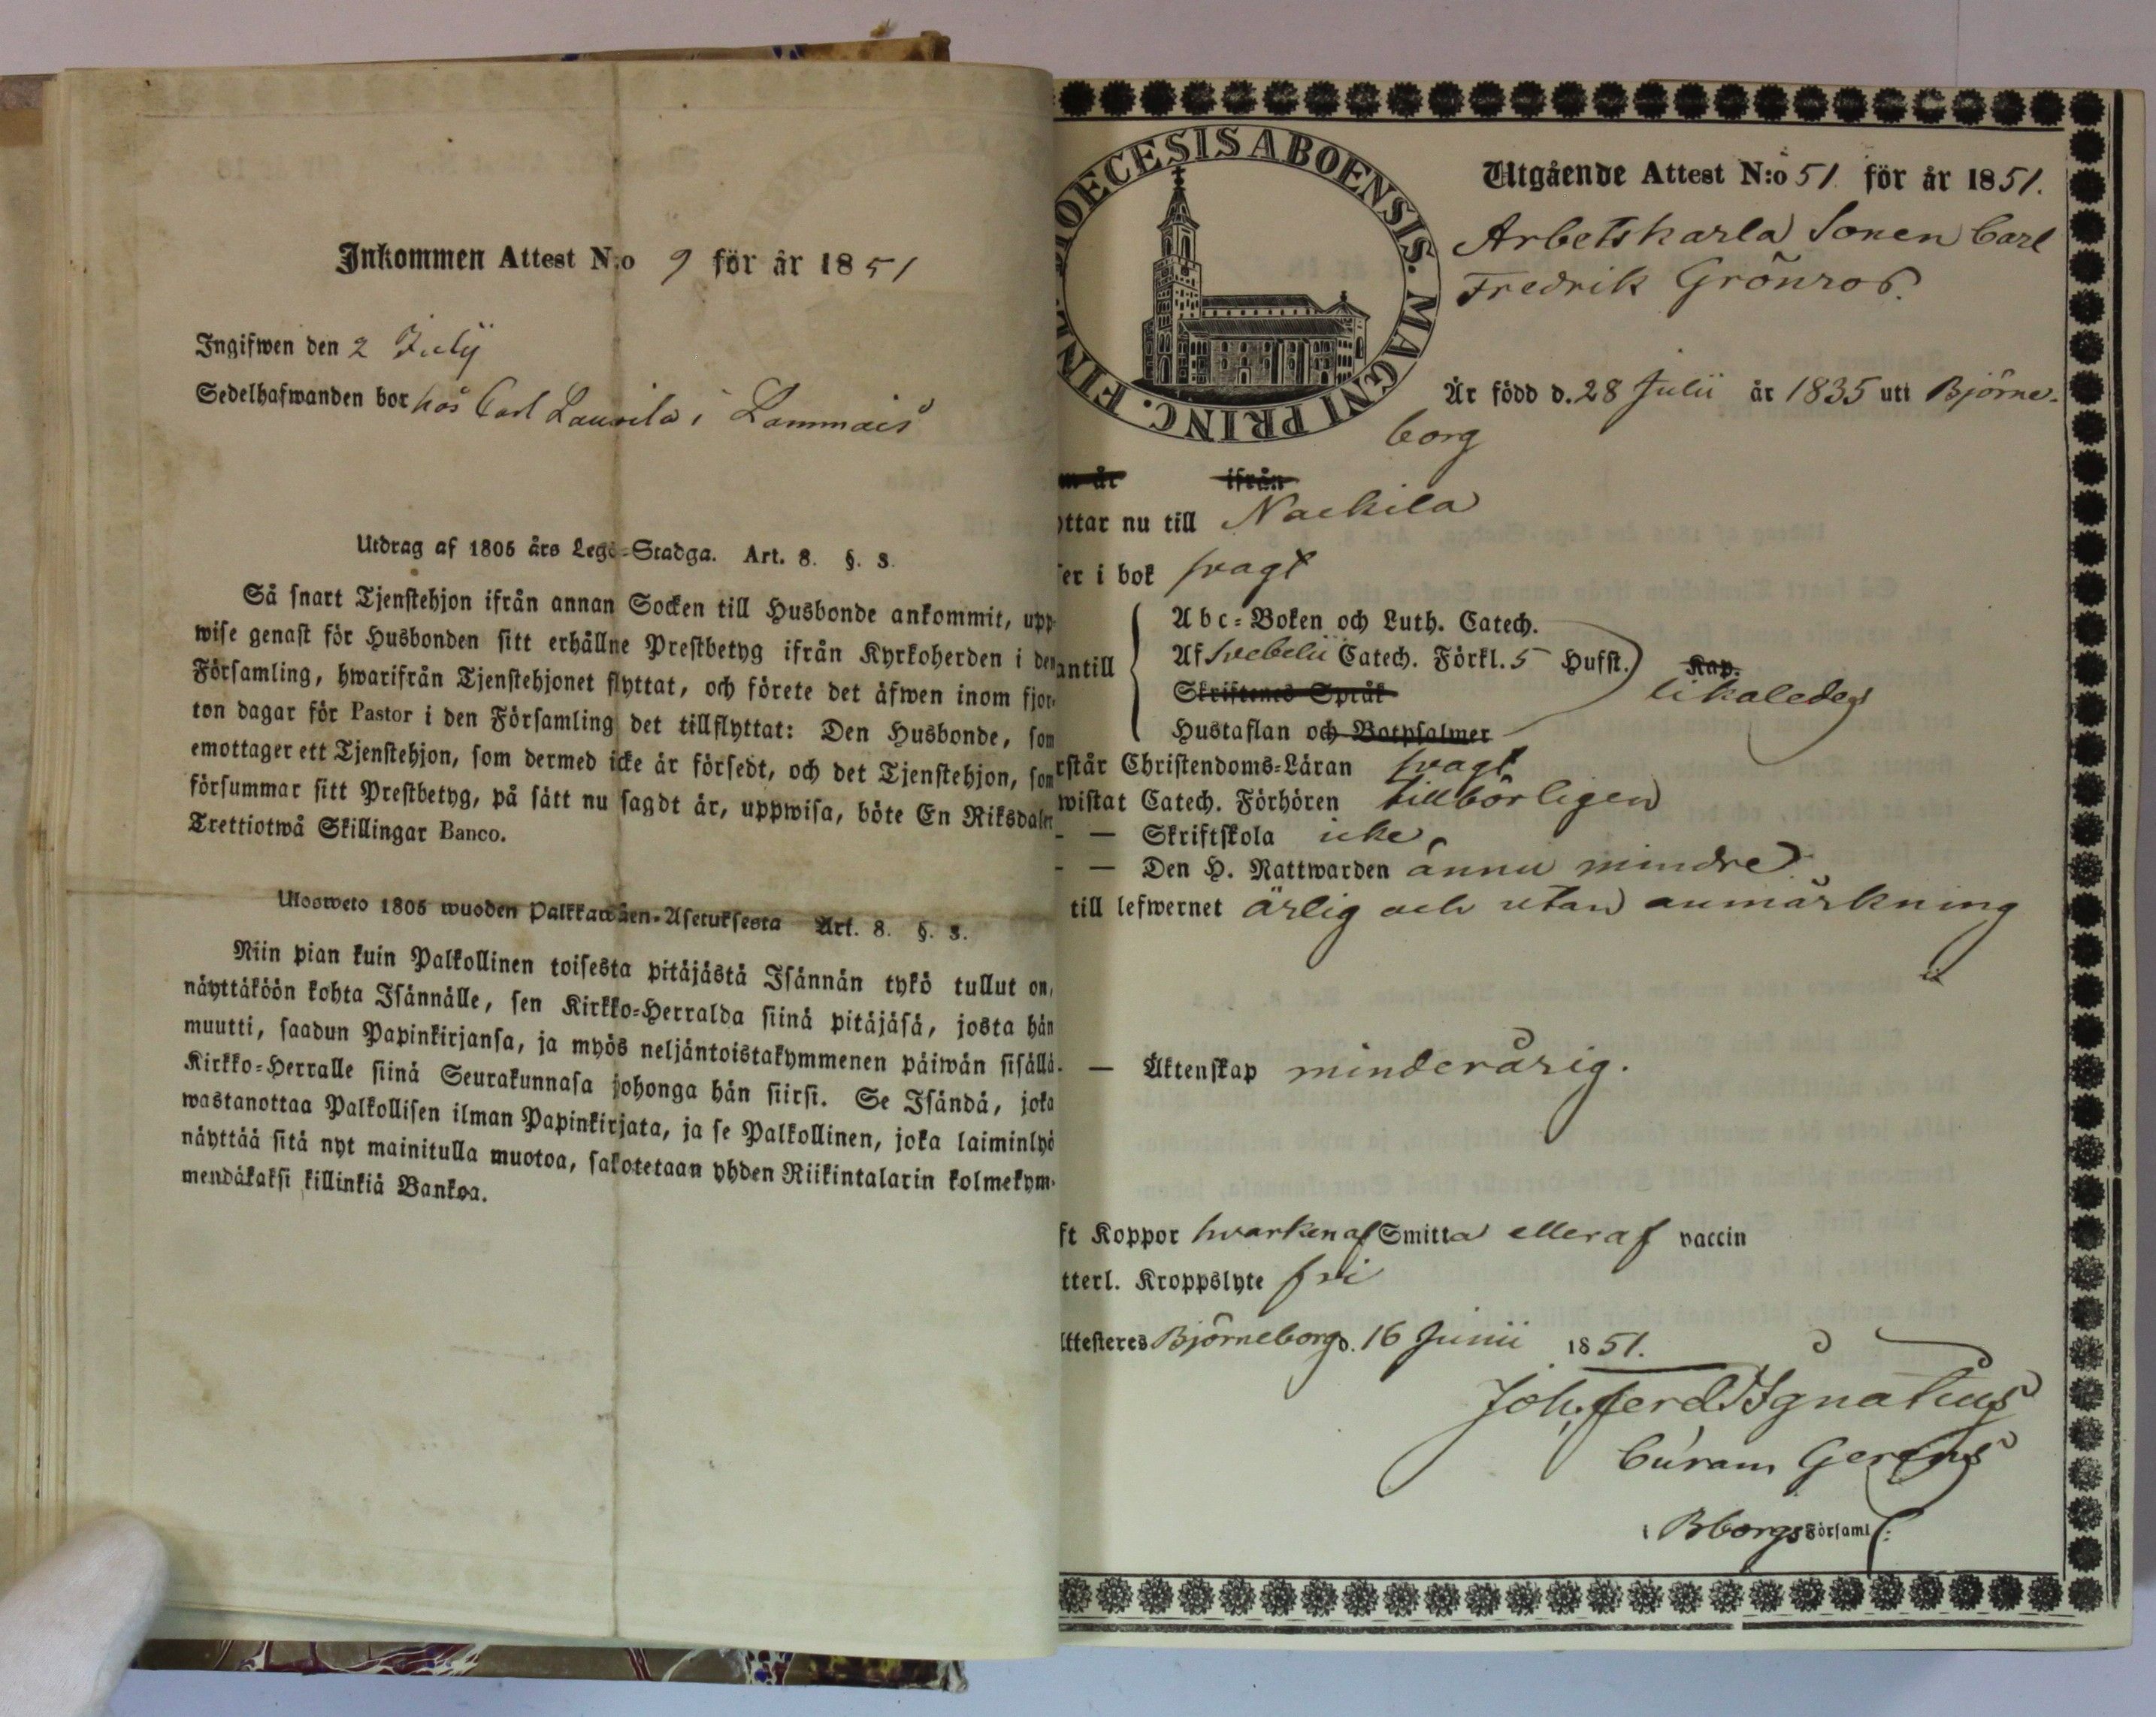 Inkommen Attest N:o 9 för år 1851
Ingifwen den 2 Julij
Sedelhafwanden bor hos Carl Laurila i Lammais
Utdrag af 1805 års Lego-Stadga. Art. 8. §. 3.
Så snart Tjenstehjon ifrån annan Socken till Husbonde ankommit, upp-
wise genast för Husbonden sitt erhållne Prestbetyg ifrån Kyrkoherden i den
Församling, hwarifrån Tjenstehjonet flyttat, och förete det äfwen inom fjor-
ton dagar för Pastor i den Församling det tillflyttat: Den Husbonde, som
emottager ett Tjenstehjon, som dermed icke är försedt, och det Tjenstehjon, som
försummar sitt Prestbetyg, på sätt nu sagdt är, uppwisa, böte En Riksdaler
Trettiotwå Skillingar Banco.
Ulosweto 1805 wuoden Palkkawäen-Asetuksesta Art. 8. §. 3.
Niin pian kuin Palkollinen toisesta pitäjästä Isännän tykö tullut on,
näyttäköön kohta Isännälle, sen Kirkko-Herralda siinä pitäjäsä, josta hän
muutti, saadun Papinkirjansa, ja myös neljäntoistakymmenen päiwän sisällä
Kirkko-Herralle siinä Seurakunnasa johonga hän siirsi. Se Isändä, joka
wastanottaa Palkollisen ilman Papinkirjata, ja se Palkollinen, joka laiminlyö
näyttää sitä nyt mainitulla muotoa, sakotetaan yhden Riikintalarin kolmekym-
mendäkaksi killinkiä Bankoa.
DIOECESIS ABOENSIS. MAGNI PRINC. FINL.
Utgående Attest N:o 51. för år 1851.
Arbetskarla Sonen Carl
Fredrik Grönros.
Är född d. 28 Julii år 1835 uti Björne-
borg
m år ifrån
ttar nu till Nackila
ser i bok svagt
Abc-Boken och Luth. Catech.
antill Af Svebelii Catech. Förkl. 5 Hufst. Kap.
likaledes
Skriftenes Språk
Hustaflan och Botpsalmer
rstår Christendoms-Läran svagt
wistat Catech. Förhören tillbörligen
- — Skriftskola icke,
- — Den H. Nattwarden ännu mindre.
till lefwernet ärlig och utan anmärkning
- — Äktenskap minderårig.
ft Koppor hvarken af Smitta eller af vaccin
tterl. Kroppslyte fri
Attesteres Björneborg d. 16 Junii 1851.
Joh. Ferd. Ignatius
Curam Gerens
i Bborgs Församl: